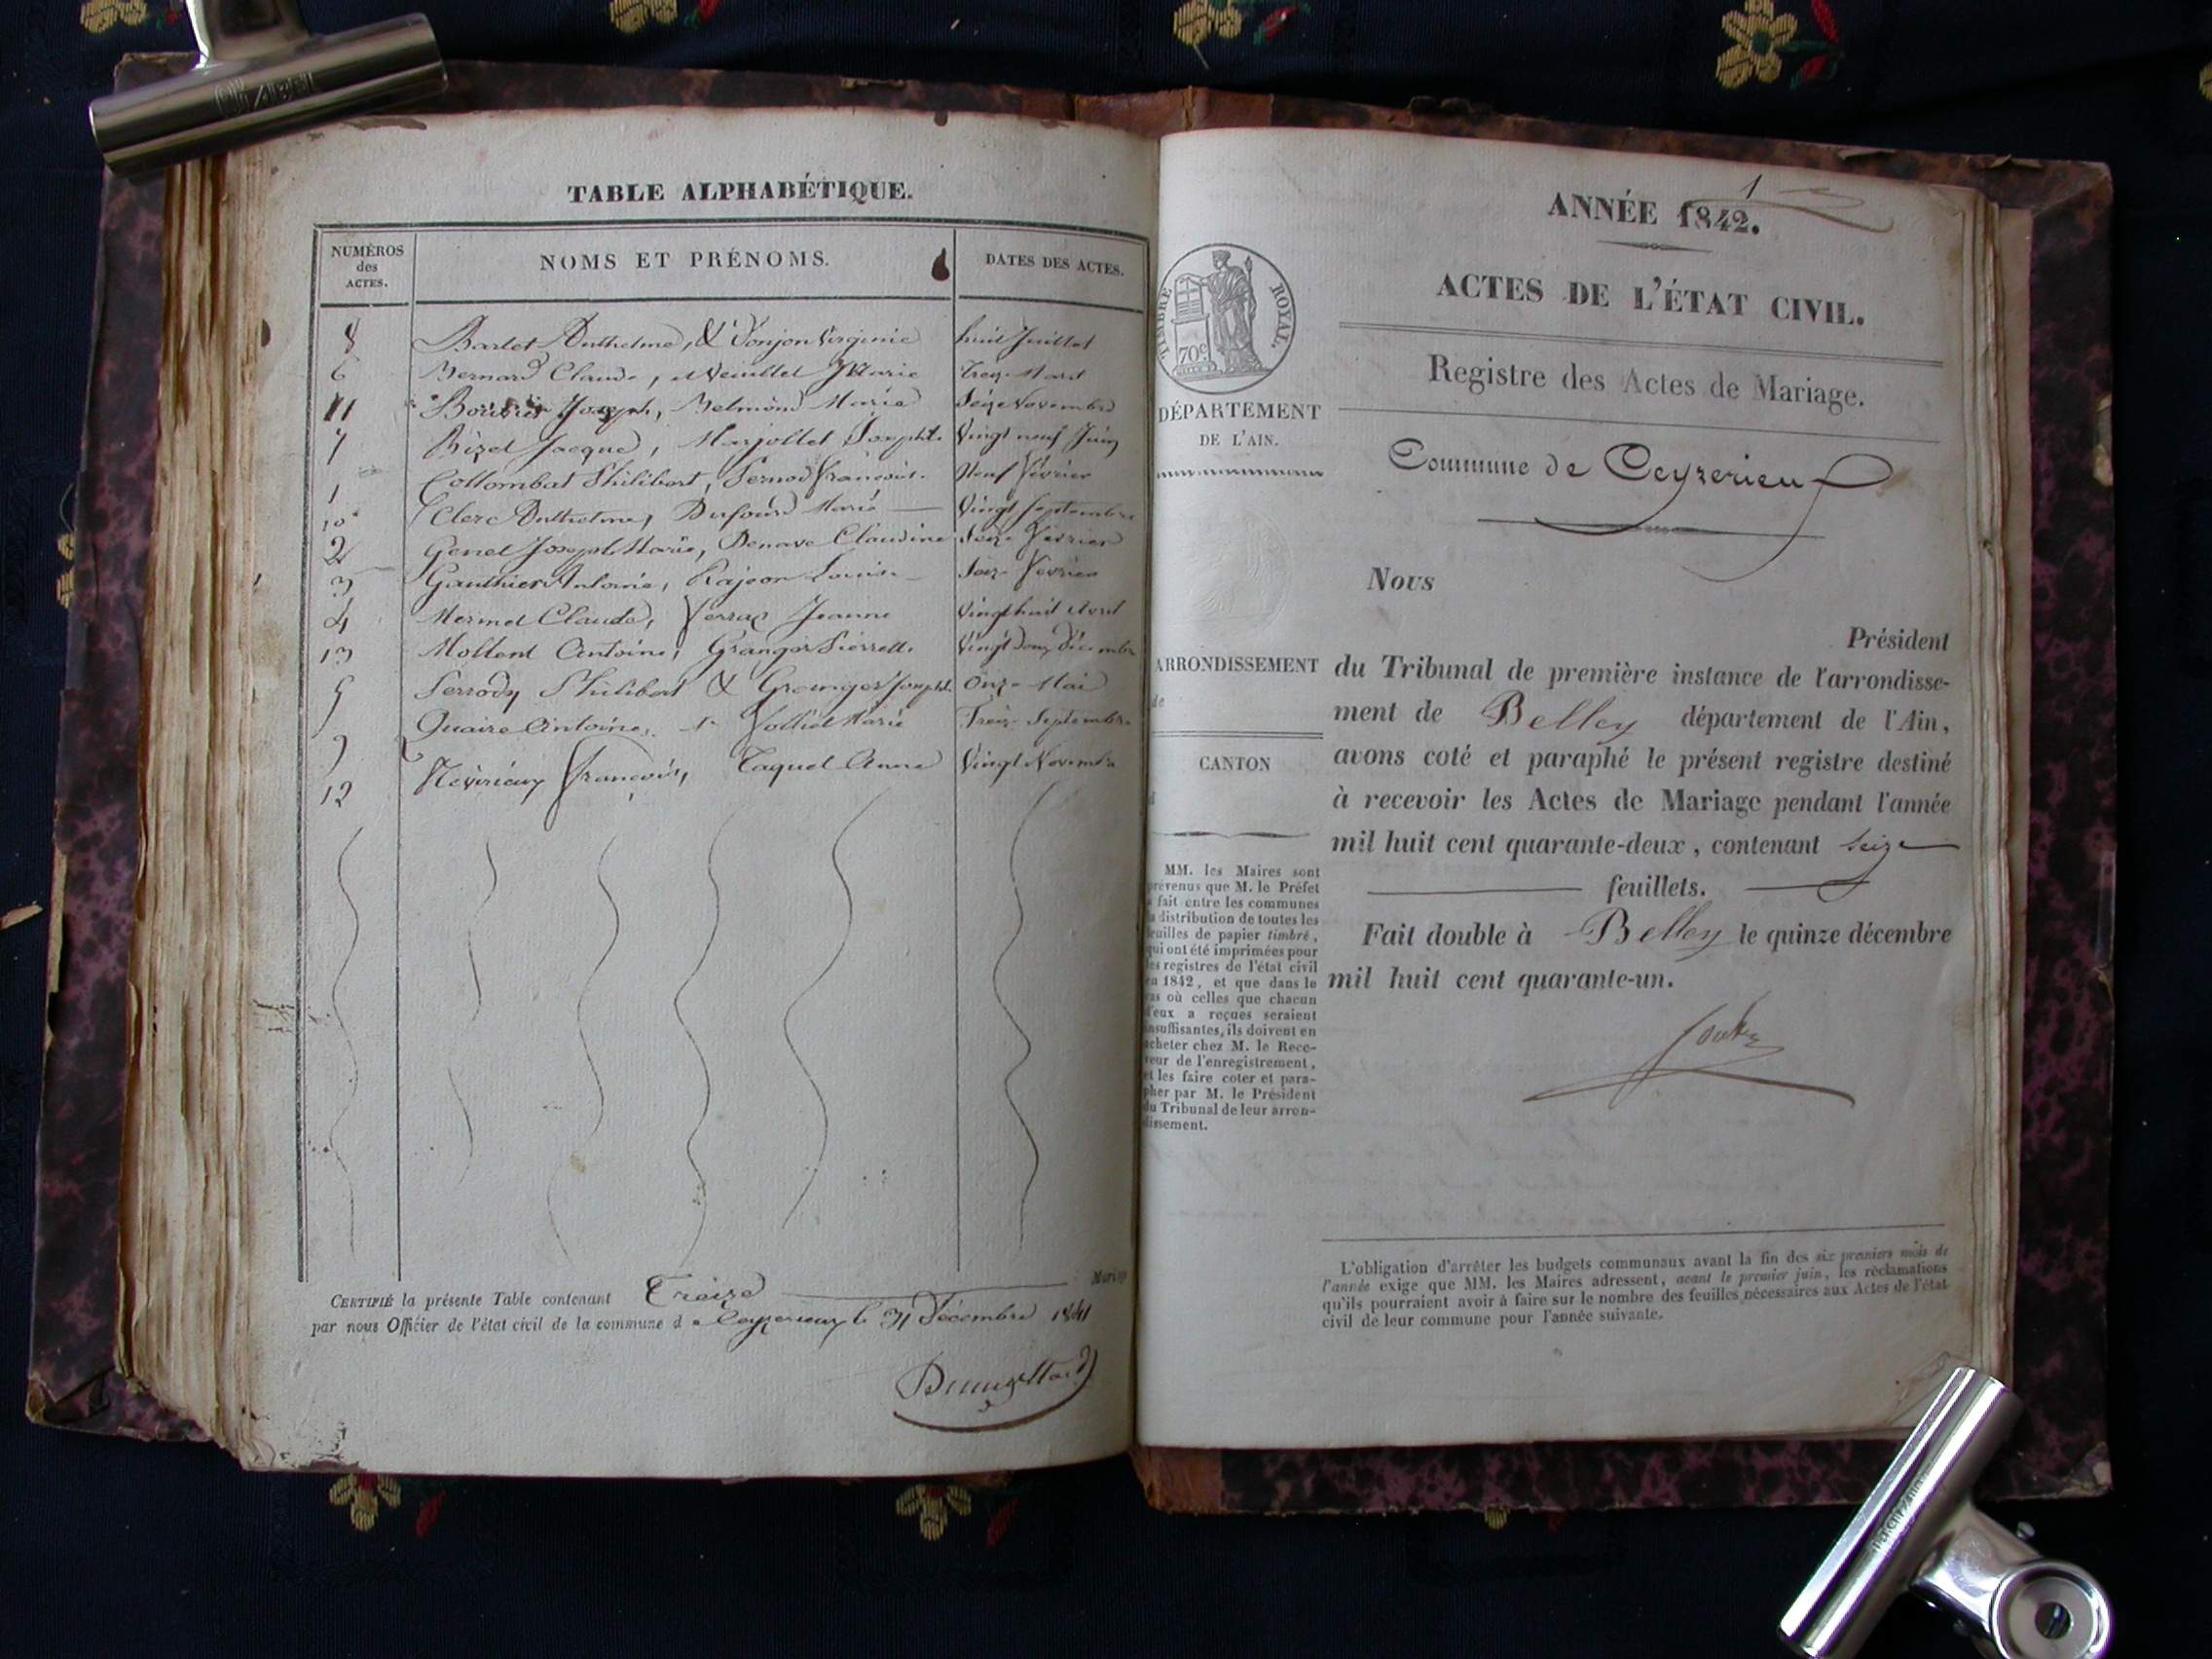 TABLE ALPHABÉTIQUE.
NUMÉROS
des
ACTES.
NOMS ET PRÉNOMS.
DATES DES ACTES.
8 Bartet Anthelme, & Donjon Virginie huit Juillet
6 Bernard Claude, et Marie
11 Joseph, Belmond Marie Seize Novembre
7 Bizet Jacque, Marjollet Josephte Vingt neuf Juin
1 Collombat Philibert, François. Neuf Février
10 Clerc Anthelme, Dufour Marie Vingt Septembre
2 Genet Joseph Marie, Benave Claudine Seize Février
3 Gauthier Antoine, Rajeon Louise Seize Février
4 Mermet Claude, Jeanne Vingt huit Avril
13 Mollent Antoine, Granger Pierrette Vingt Décembre
5 Perrody Philibert & Granger Josephte Onze Mai
9 Quaire Antoine, Marie Septembre
12 François, Taquet Anne Vingt Novembre
CERTIFIÉ la présente Table contenant Treize
par nous Officier de l'état civil de la commune d e Ceyzerieux le 31 Décembre 1841
1
ANNÉE 1842.
ACTES DE L'ÉTAT CIVIL.
Registre des Actes de Mariage.
Commune de Ceyzerieu
TIMBRE ROYAL.
70c
DÉPARTEMENT
DE L'AIN.
ARRONDISSEMENT
de
CANTON
d
MM. les Maires sont
prévenus que M. le Préfet
a fait entre les communes
la distribution de toutes les
feuilles de papier timbré,
qui ont été imprimées pour
les registres de l'état civil
en 1842, et que dans le
cas où celles que chacun
d'eux a reçues seraient
insuffisantes, ils doivent en
acheter chez M. le Rece-
veur de l'enregistrement,
et les faire coter et para-
pher par M. le Président
du Tribunal de leur arron-
dissement.
Nous
Président
du Tribunal de première instance de l'arrondisse-
ment de Belley département de l'Ain,
avons coté et paraphé le présent registre destiné
à recevoir les Actes de Mariage pendant l'année
mil huit cent quarante-deux, contenant seize
feuillets.
Fait double à Belley le quinze décembre
mil huit cent quarante-un.
L'obligation d'arrêter les budgets communaux avant la fin des six premiers mois de
l'année exige que MM. les Maires adressent, avant le premier juin, les réclamations
qu'ils pourraient avoir à faire sur le nombre des feuilles nécessaires aux Actes de l'état
civil de leur commune pour l'année suivante.